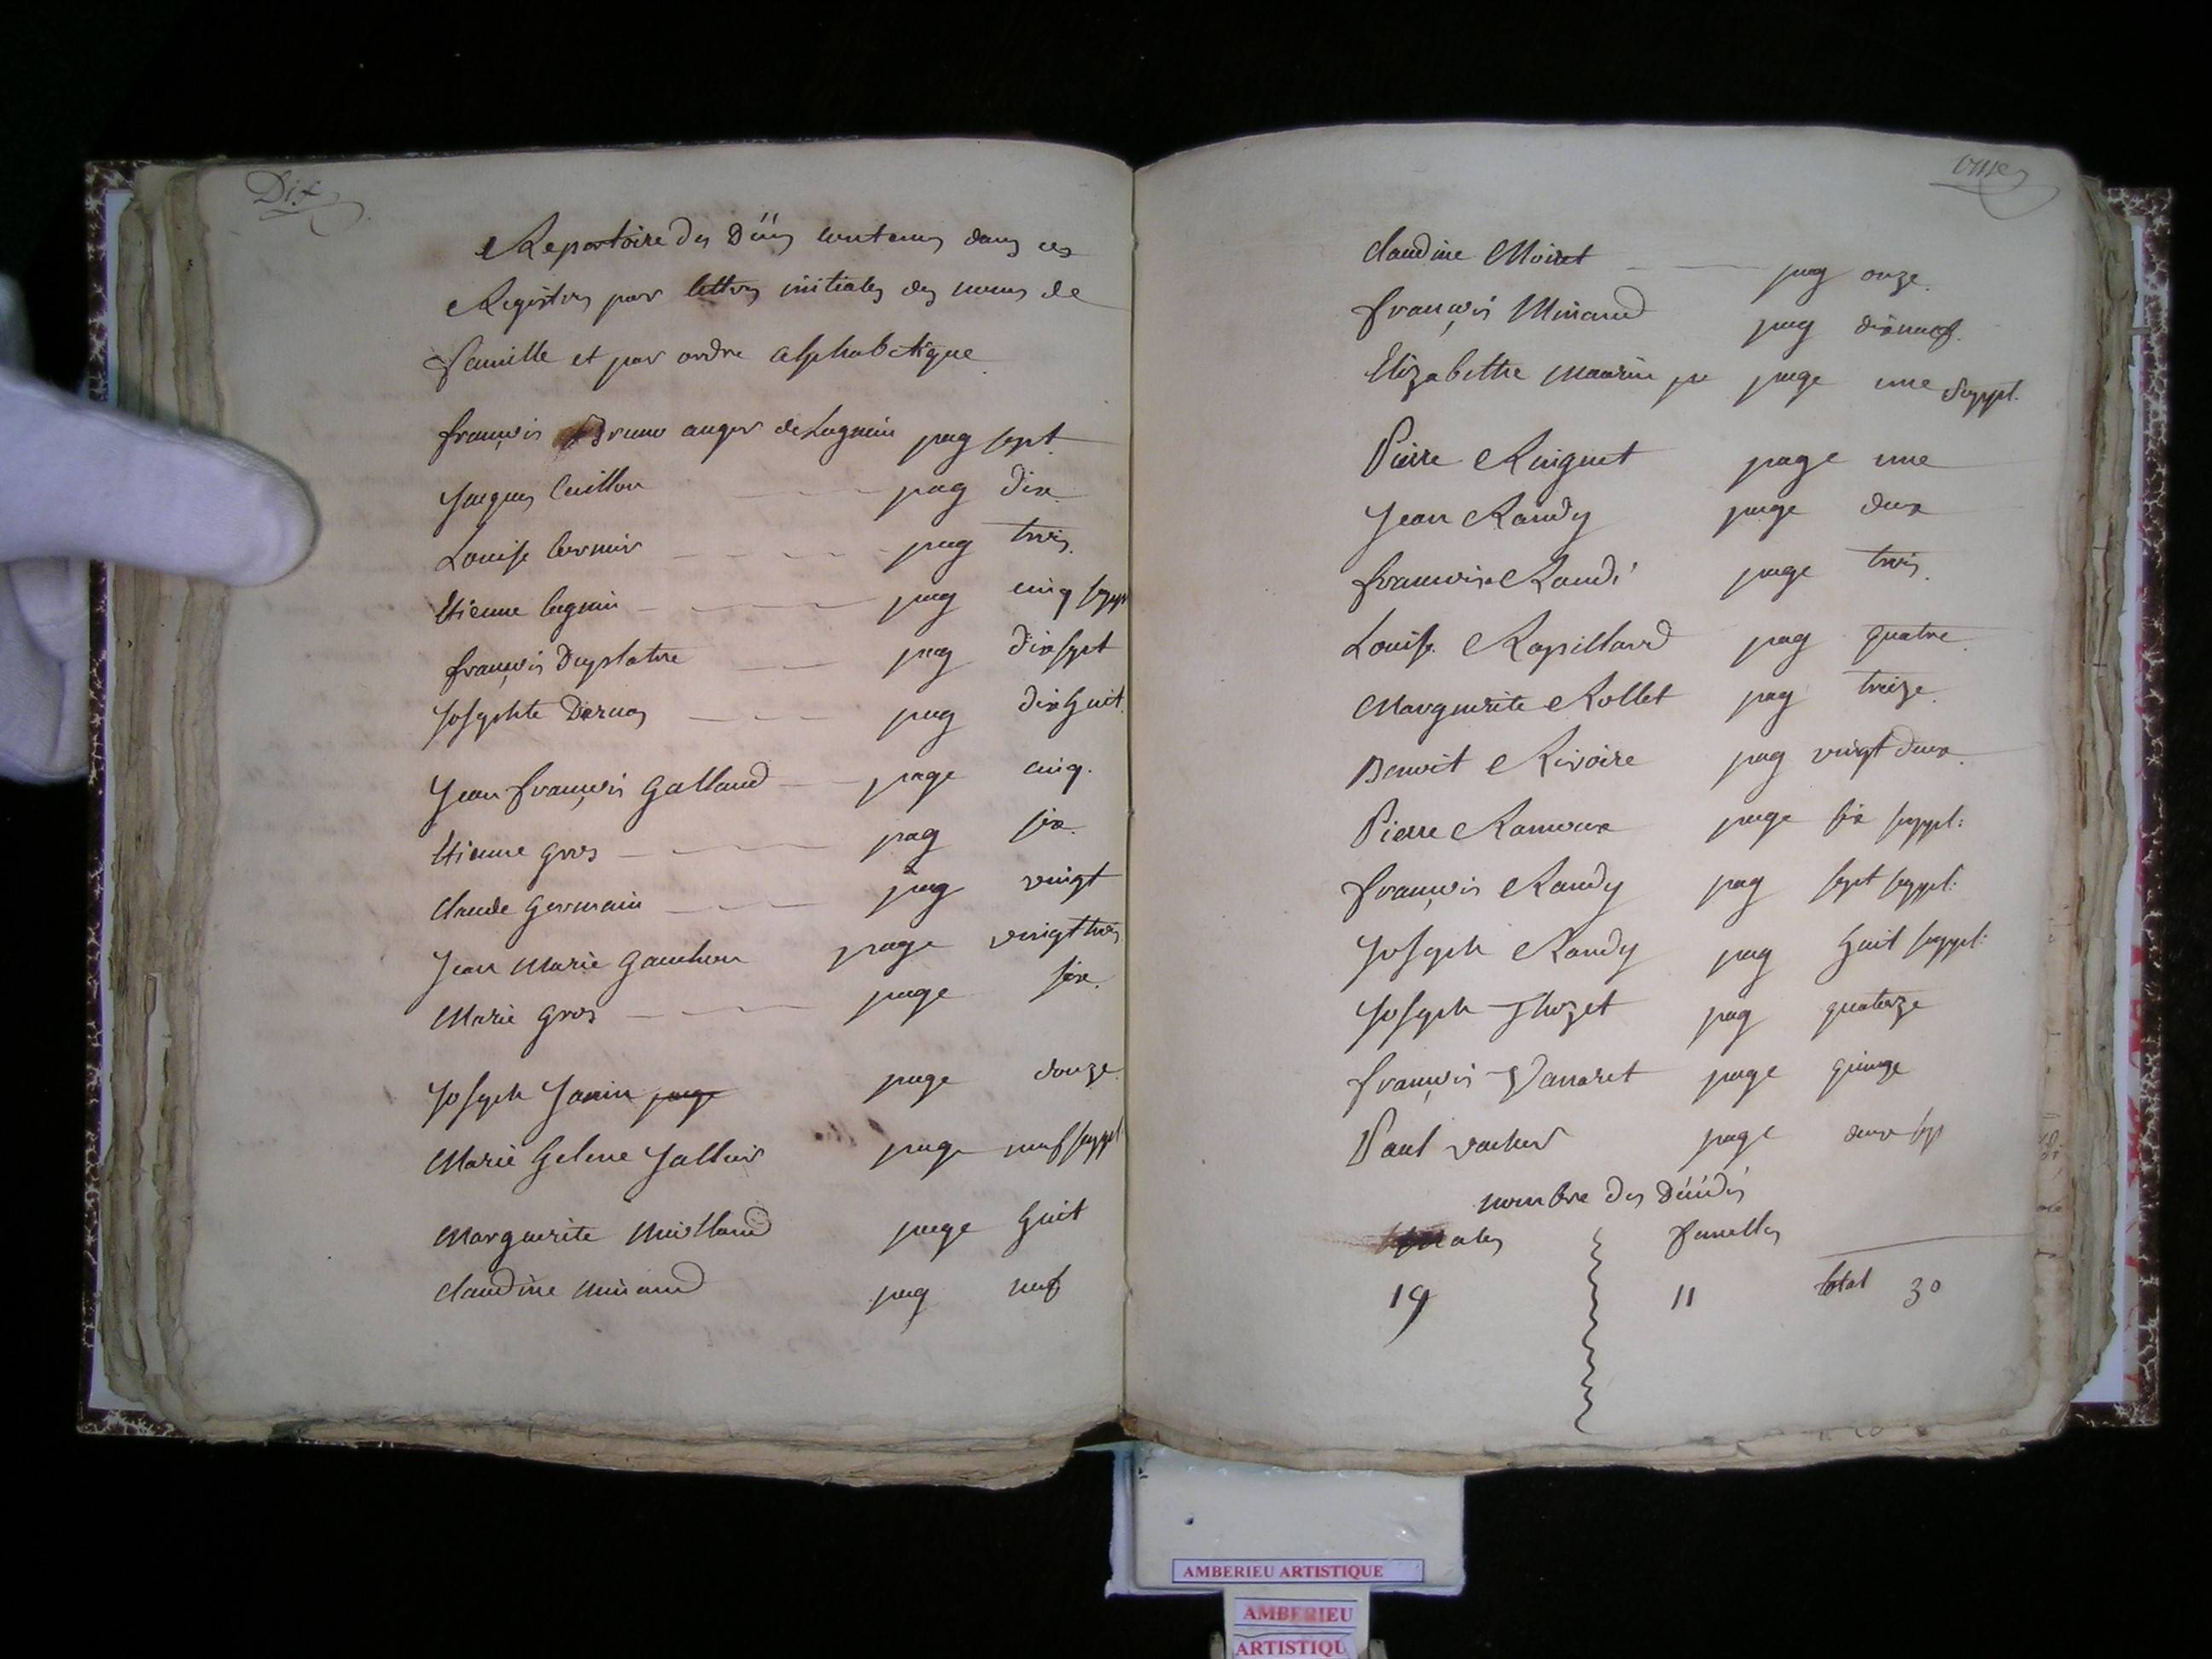 Dix
Repertoire des Décés contenus dans ces
Registres par lettres initiales des noms de
famille et par ordre alphabetique.
françois Bruno auger de Lagnieu pag sept.
Jacques Cuillon pag dix
Louise Cormier pag trois.
Etienne Cugnin pag cinq suppl
françois Duplatre pag dix sept
Josephte Dernas pag dix huit.
Jean françois Galland page cinq.
Etienne Gros pag six.
Claude Germain pag vingt
Jean Marie Gauthier page vingt trois
Marie Gros page six.
Joseph Janin page page douze
Marie helene Jallier page neuf suppl
Marguerite page huit
Claudine Minand pag neuf
onze
Claudine Moiret pag onze.
françois Minand pag dixneuf.
Elizabethe page une suppl.
Pierre Ringuet page une
Jean Randy page deux
francoise Randi page trois.
Louise Rapillard pag quatre.
Marguerite Rollet pag treize.
Benoit Rivoire pag vingt deux.
Pierre Ramoux page six suppl:
françois Randy pag sept suppl:
Joseph Randy pag huit suppl:
Joseph Thozet pag quatorze
françois Vanaret page quinze
Paul vacher page deux sp
nombre des Décédés
Males femelles
19 11 total 30
AMBERIEU ARTISTIQUE
AMBERIEU
ARTISTIQU